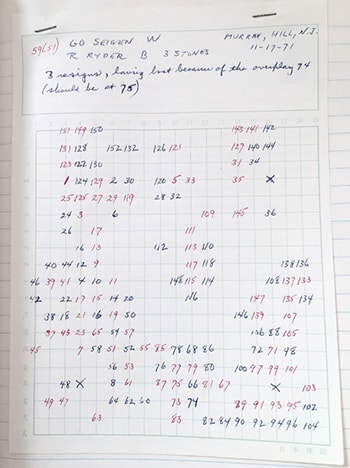 59(51) GO SEIGEN W MURRAY HILL, N.J.
R RYDER B 3 STONES 11-17-71
B resigns, having lost because of the overplay 74
(should be at 75)
151 149 150 143 141 142
131 128 152 132 126 121 127 140 144
123 122 130 31 34
1 124 129 2 30 120 5 33 35 X
25 125 27 29 119 28 32
24 3 6 109 145 36
26 17 111
16 13 112 113 110
40 44 12 9 117 118 138 136
46 39 41 4 10 11 148 115 114 108 137 133
42 22 17 15 14 20 116 147 135 134
38 18 21 16 19 50 146 139 107
37 43 23 65 54 57 106 88 105
45 7 58 51 52 55 85 78 68 86 72 71 98
56 53 76 77 79 80 100 97 99 101
48 X 8 61 87 75 66 81 67 X 103
49 47 64 62 60 73 74 89 91 93 95 102
63 83 82 84 90 92 94 96 104
日本棋院